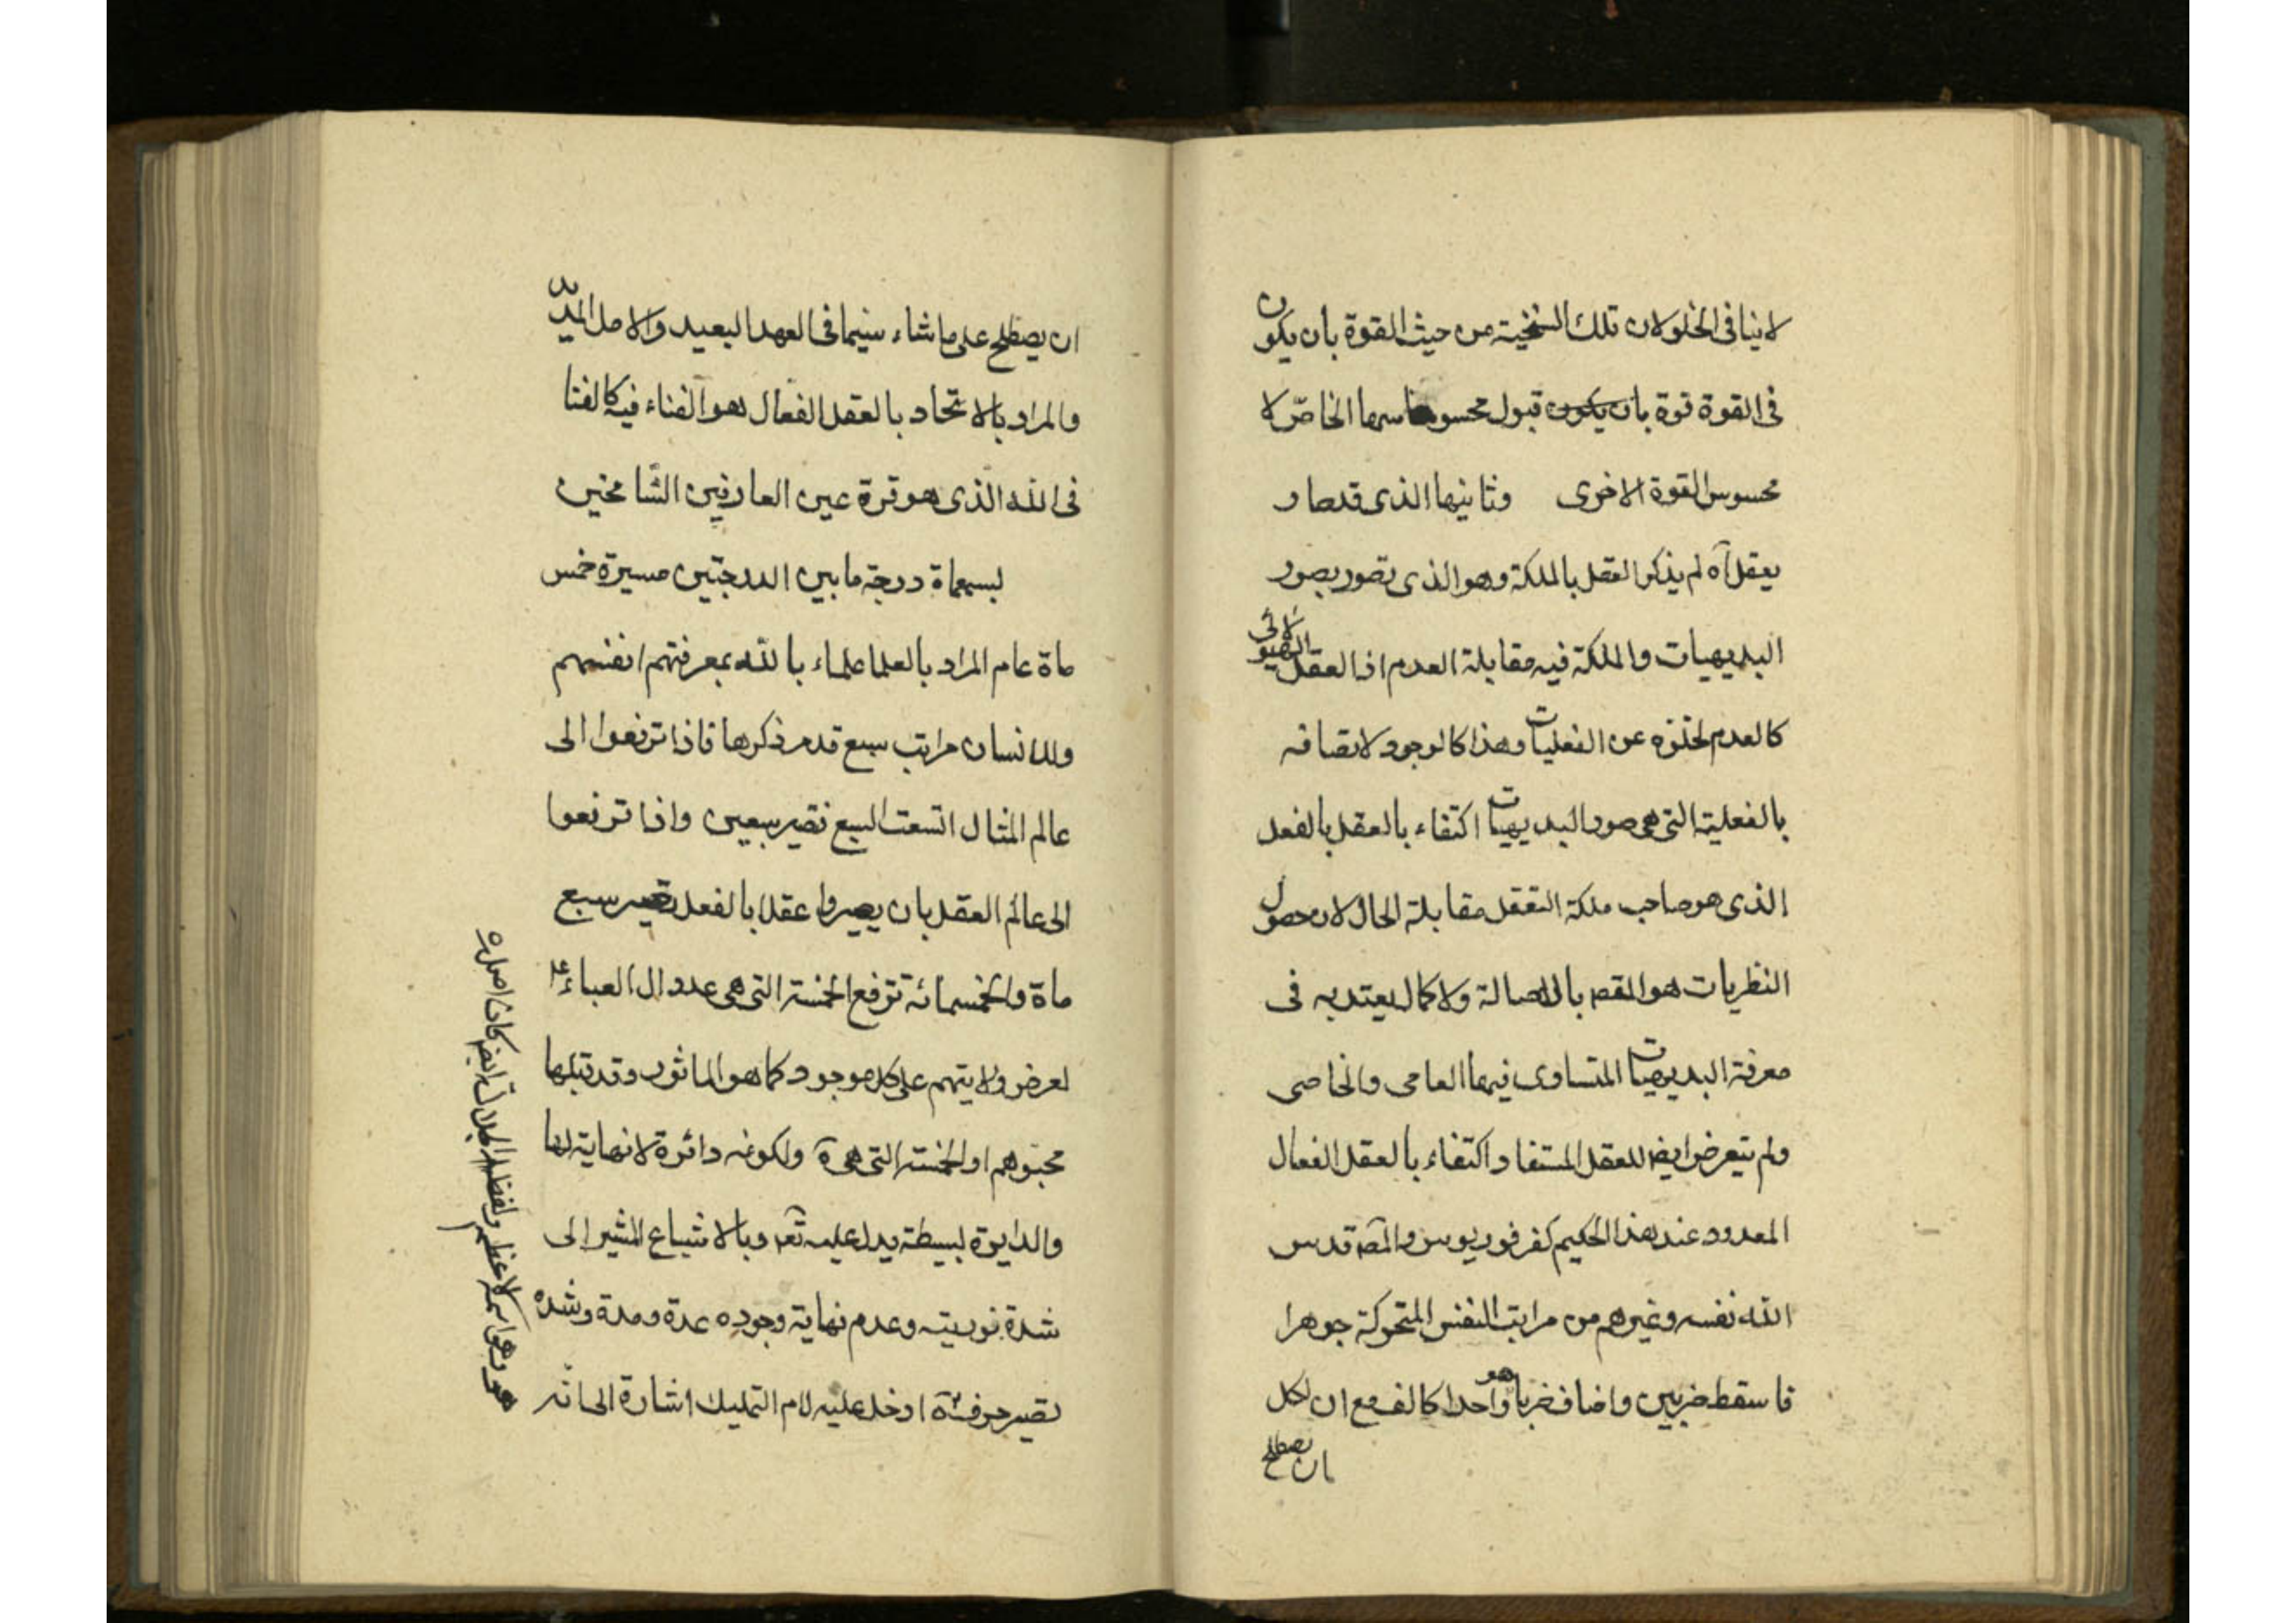 لا ينافى الخلو لان تلك السنخية من حيث القوة بان يكون
فى القوة قوة بان يكون قبول محسوسها الخاص لا
محسوس القوة الاخرى وثانيها الذى قد صار
يعقل آه لم يذكر العقل بالملكة وهو الذى تصور بصور
البديهيات والملكة فيه مقابلة العدم اذ العقل الهيولائى
كالعدم لخلوه عن الفعليات وهذا كالوجود لاتصافه
بالفعلية التى هى صور البديهيات اكتفاء بالعقل بالفعل
الذى هو صاحب ملكة التعقل مقابلة الحال لان حصول
النظريات هو المقص بالاصالة ولا كمال يعتد به فى
معرفة البديهيات المتساوى فيها العامى والخاصى
ولم يتعرض ايض للعقل المستفاد اكتفاء بالعقل الفعال
المعدود عند هذا الحكيم كفرفوريوس والمص قدس
الله نفسه وغيرهم من مراتب النفس المتحركة جوهرا
فاسقط ضربين واضاف ضربا واحدا هو كالف مع ان لكل
ان يصطلح
ان يصطلح على ما شاء سيما فى العهد البعيد والامد المديد
والمراد بالاتحاد بالعقل الفعال هو الفناء فيه كالفنا
فى الله الذى هو قرة عين العارفين الشامخين
لسبعماة درجة ما بين الدرجتين مسيرة خمس
ماة عام المراد بالعلما علماء بالله بمعرفتهم انفسهم
وللانسان مراتب سبع قد مر ذكرها فاذا ترفعوا الى
عالم المثال اتسعت السبع فتصير سبعين واذا ترفعوا
الى عالم العقل بان يصيروا عقلا بالفعل تصير سبع
ماة والخمسمائة ترفع الخمسة التى هى عدد ال العباء
لعرض ولايتهم على كل موجود كما هو الماثور وقد قبلها
محبوهم او الخمسة التى هى ة ولكونه دائرة لا نهاية لها
والدايرة بسيطة يدل عليه تع وبالاشباع المشير الى
شدة نوريته وعدم نهاية وجوده عدة ومدة وشدة
تصير حرفيته ادخل عليه لام التمليك اشارة الى انه
هو وهو اسمه الاعظم ولفظ الجلالة ايض كان اصله